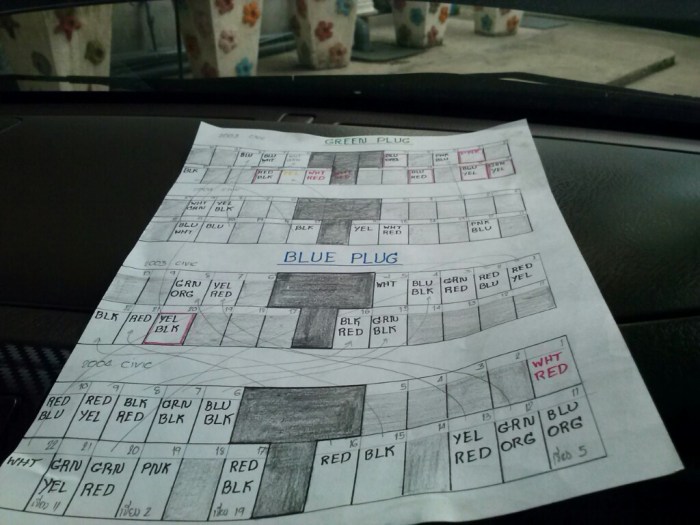 2003 CIVIC
GREEN PLUG
BLU BLU WHT BLU PNK BLU
RED BLK WHT RED BLU RED BLU YEL GRN YEL
WHT GRN YEL BLK
BLU WHT BLU BLK YEL WHT RED PNK BLU
BLUE PLUG
2003 CIVIC
GRN ORG YEL RED WHT BLU BLK GRN RED RED BLU RED YEL
BLK RED YEL BLK BLK RED GRN BLK
2004 CIVIC
10 9 8 7 6 5 4 3 2 1
RED BLU RED YEL BLK RED GRN BLK BLU BLK WHT RED
22 21 20 19 18 17 16 15 14 13 12 11
WHT GRN YEL GRN RED PNK RED BLK RED BLK YEL RED GRN ORG BLU ORG
เสียบ 2 เสียบ 19 เสียบ 5